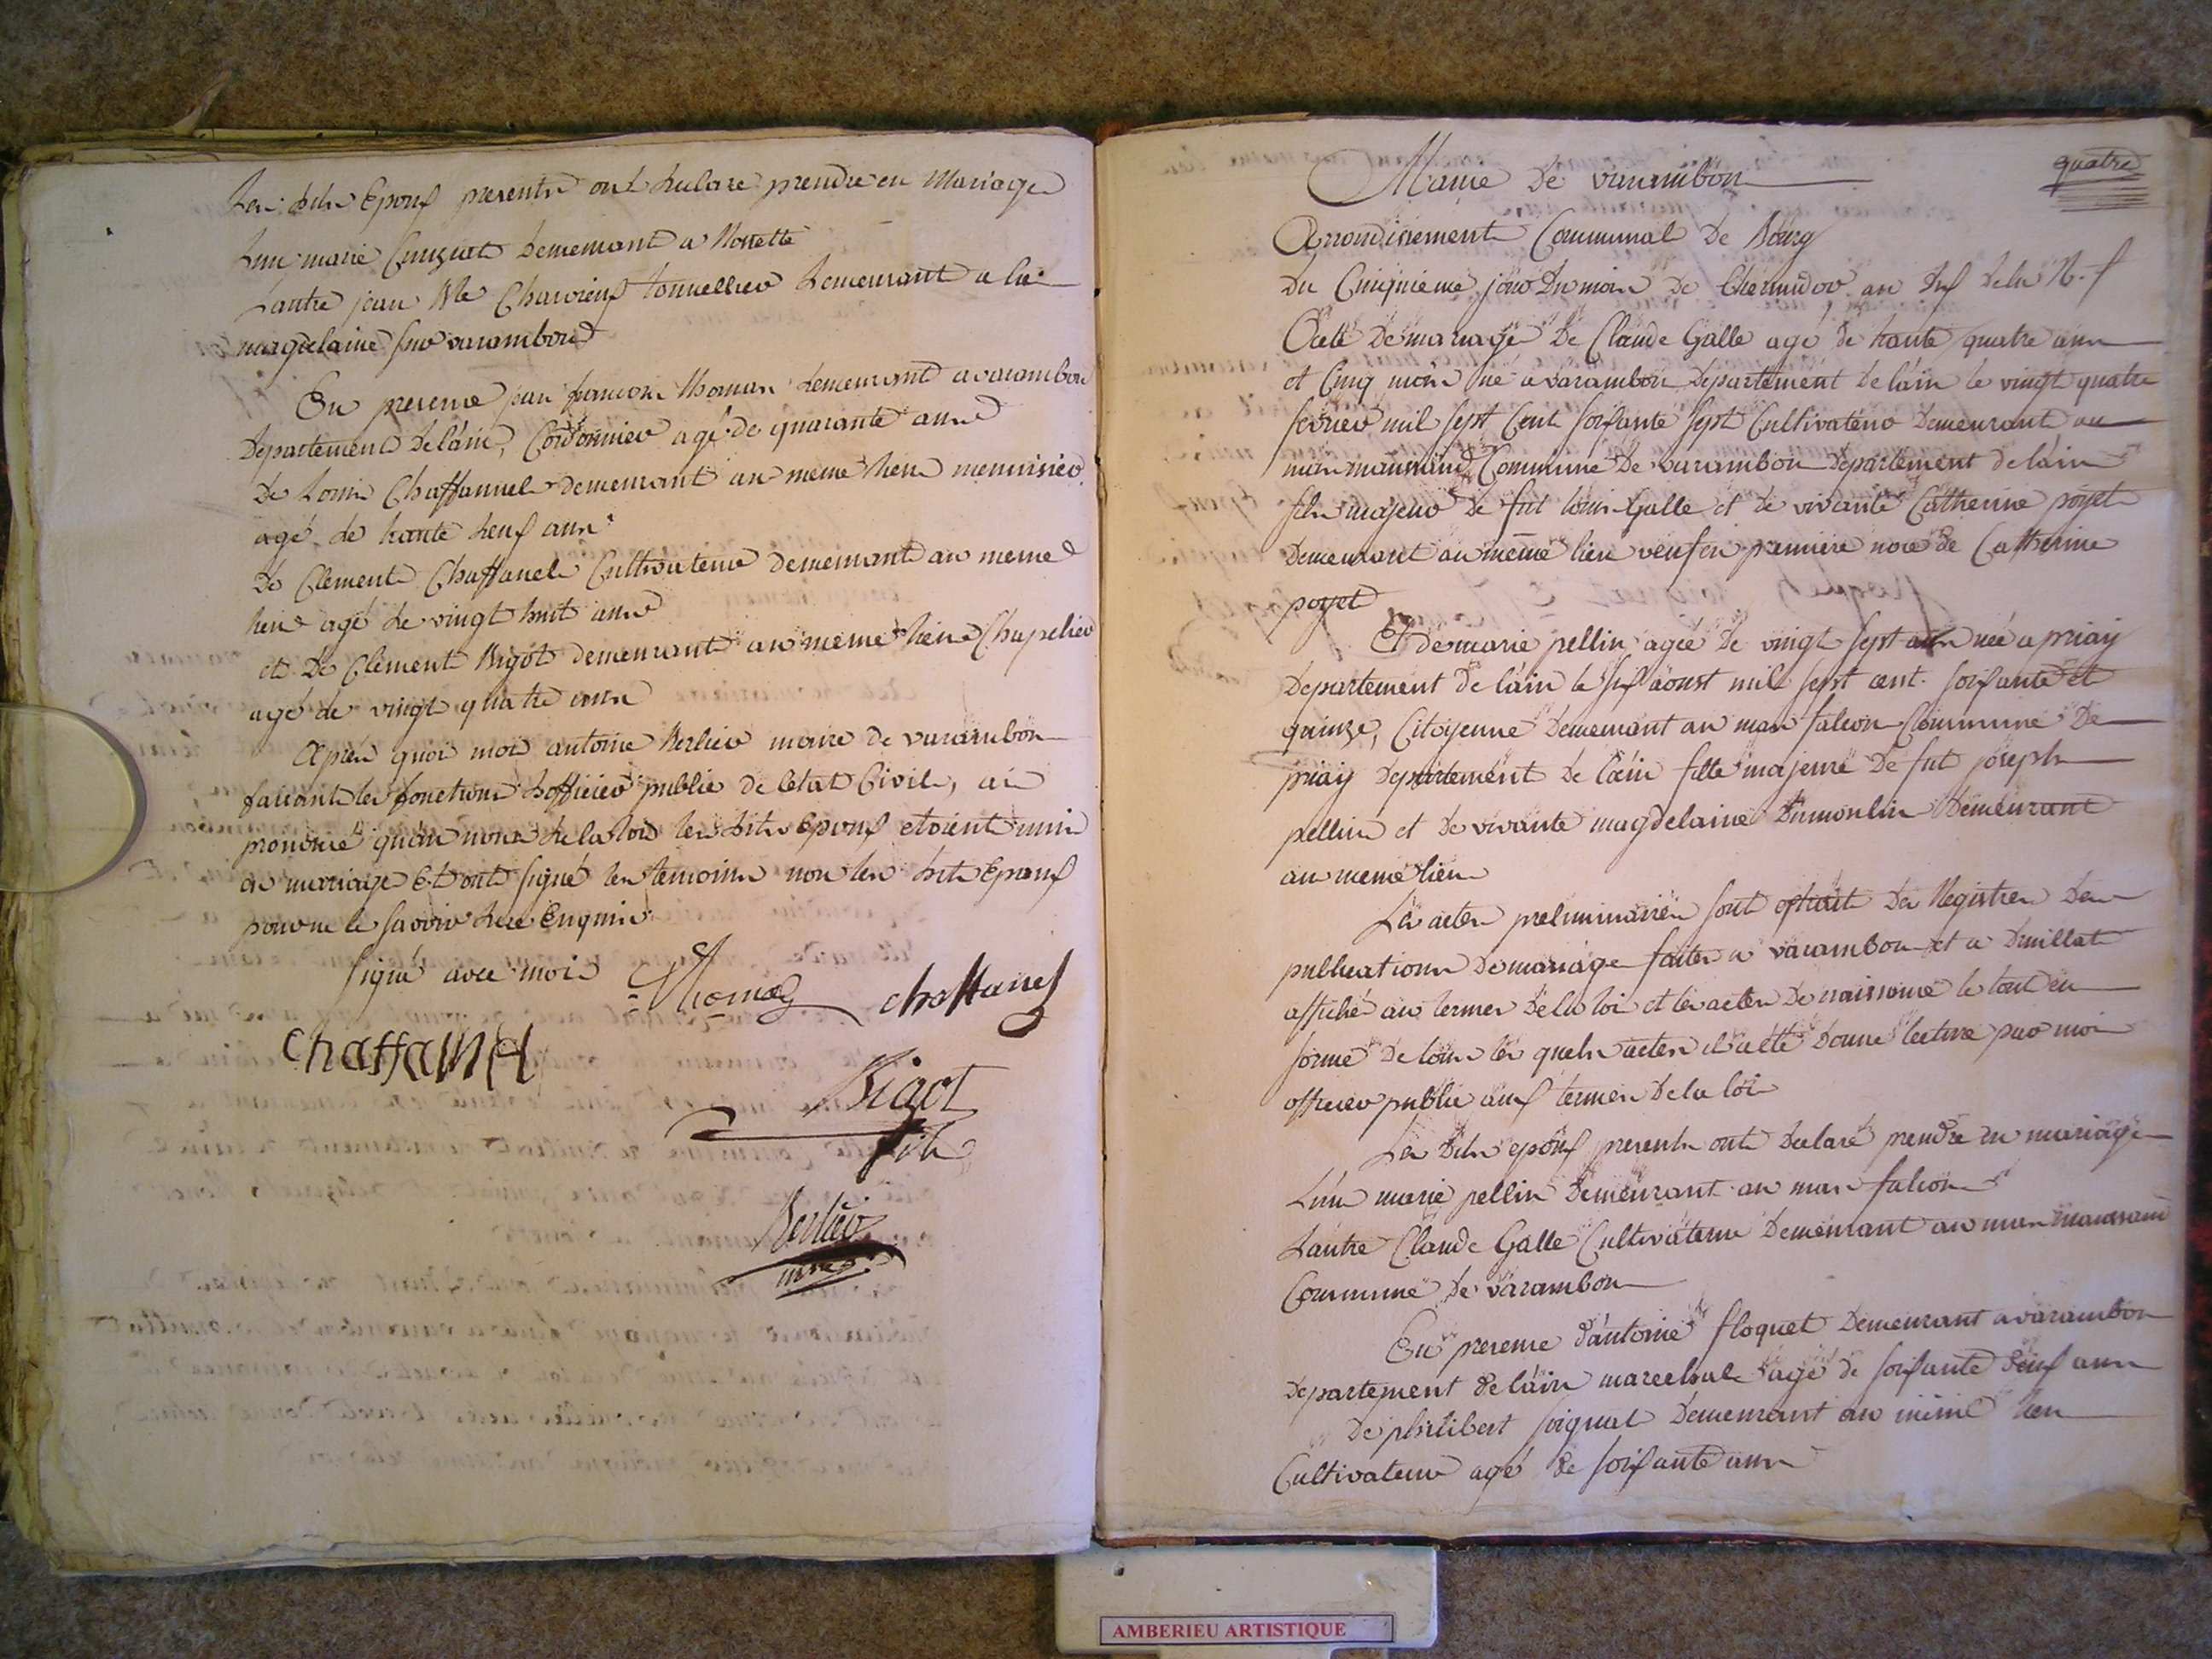 Les dits Epoux presents ont declare prendre en Mariage
Lun marie Cuzuat demeurant a Rossette
Lautre jean Bte Charvieux tonnellier demeurant a la
magdelaine sur varambon
En presence jean francois thomas demeurant a varambon
Departement de lain, Cordonnier agé de quarante ans
De Louis Chaffannel demeurant au meme lieu menuisier
agé de trente neuf ans
De Clement Chaffanel Cultivateur demeurant au meme
lieu agé de vingt huit ans
et De Clement Bigot demeurant au meme lieu Chapelier
agé de vingt quatre ans
Après quoi moi antoine Berlier maire de varambon
faisant les fonctions dofficier public de letat Civil, ai
prononcé qu'au nom de la loi les dits Epoux etoient unis
en mariage Et ont signé les temoins non les dits Epoux
pour ne le savoir de ce Enquis
signé avec moi Thomas chaffanel
Chaffannel
Bigot
fils
Berlier
mre
quatre
Mairie De varambon
Arrondissement Communal De Bourg
Du Cinquieme jour Du mois De thermidor an Dix De la R. f
Acte De mariage De Claude Galle agé de trante quatre ans
et Cinq mois né a varambon Departement De lain le vingt quatre
fevrier mil sept Cent soixante sept Cultivateur Demeurant au
mas Commune De varambon departement de lain
fils majeur de fut louis Galle et de vivante Catherine poyet
Demeurant au même lieu veuf en premiere noce De Catherine
poyet
Et de marie pellin agée De vingt sept ans née a priay
Departement de lain le six aoust mil sept cent soixante et
quinze, Citoyenne Demeurant au mas falcon Commune De
priay Departement De l'ain fille majeure De fut joseph
pellin et De vivante magdelaine Dumoulin Demeurant
au meme lieu
Les actes preliminaires sont extrait Des Registres Des
publications De mariage faites a varambon et a Druillat
affiché au termes De la loi et les actes De naissance le tout en
forme De tous les quels actes il a été Donné lecture par moi
officier public aux termes De la loi
Les Dits epoux presents ont Declaré prendre en mariage
L'un marie pellin Demeurant au mas falcon
L'autre Claude Galle Cultivateur Demeurant au mas
Commune De varambon
En presence d'antoine floquet Demeurant a varambon
Departement de lain marechal agé de soixante deux ans
De philibert soiquat Demeurant au même lieu
Cultivateur agé De soixante ans
AMBERIEU ARTISTIQUE